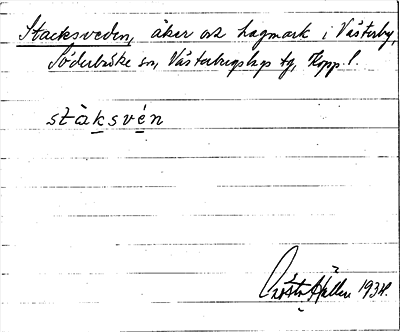 Stacksveden, åker och hagmark i Västerby,
Söderbärke sn, Västerbergslags tg, Kopp. l.
stàksvén
Gösta Hallén 1934.